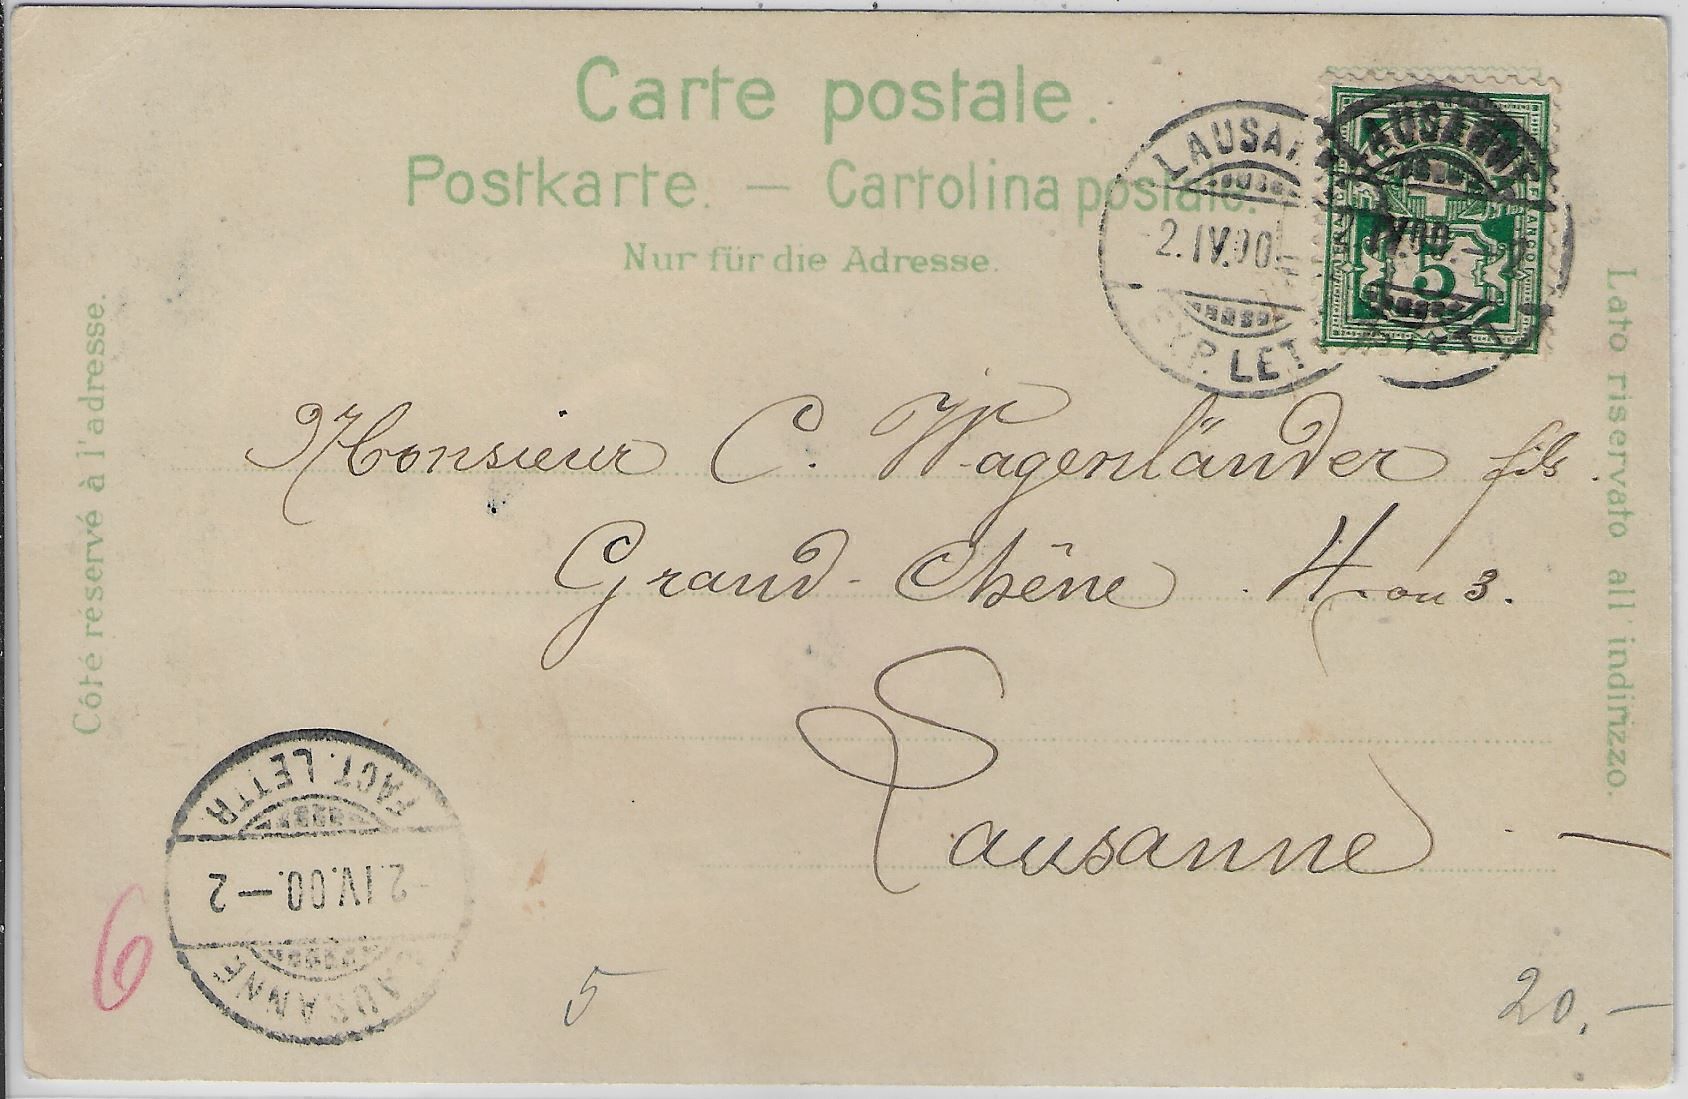 Carte postale.
Postkarte. — Cartolina postale.
Nur für die Adresse.
LAUSAN
2.IV.00
EXP. LET
LAUSANNE
FRANCO
5
Côté réservé à l'adresse.
Lato riservato all'indirizzo.
Monsieur C. Wagenländer fils.
Grand-Chêne 4 ou 3.
Lausanne —
FACT. LETTR
-2.IV.00.-2
LAUSANNE
6
5
20.-